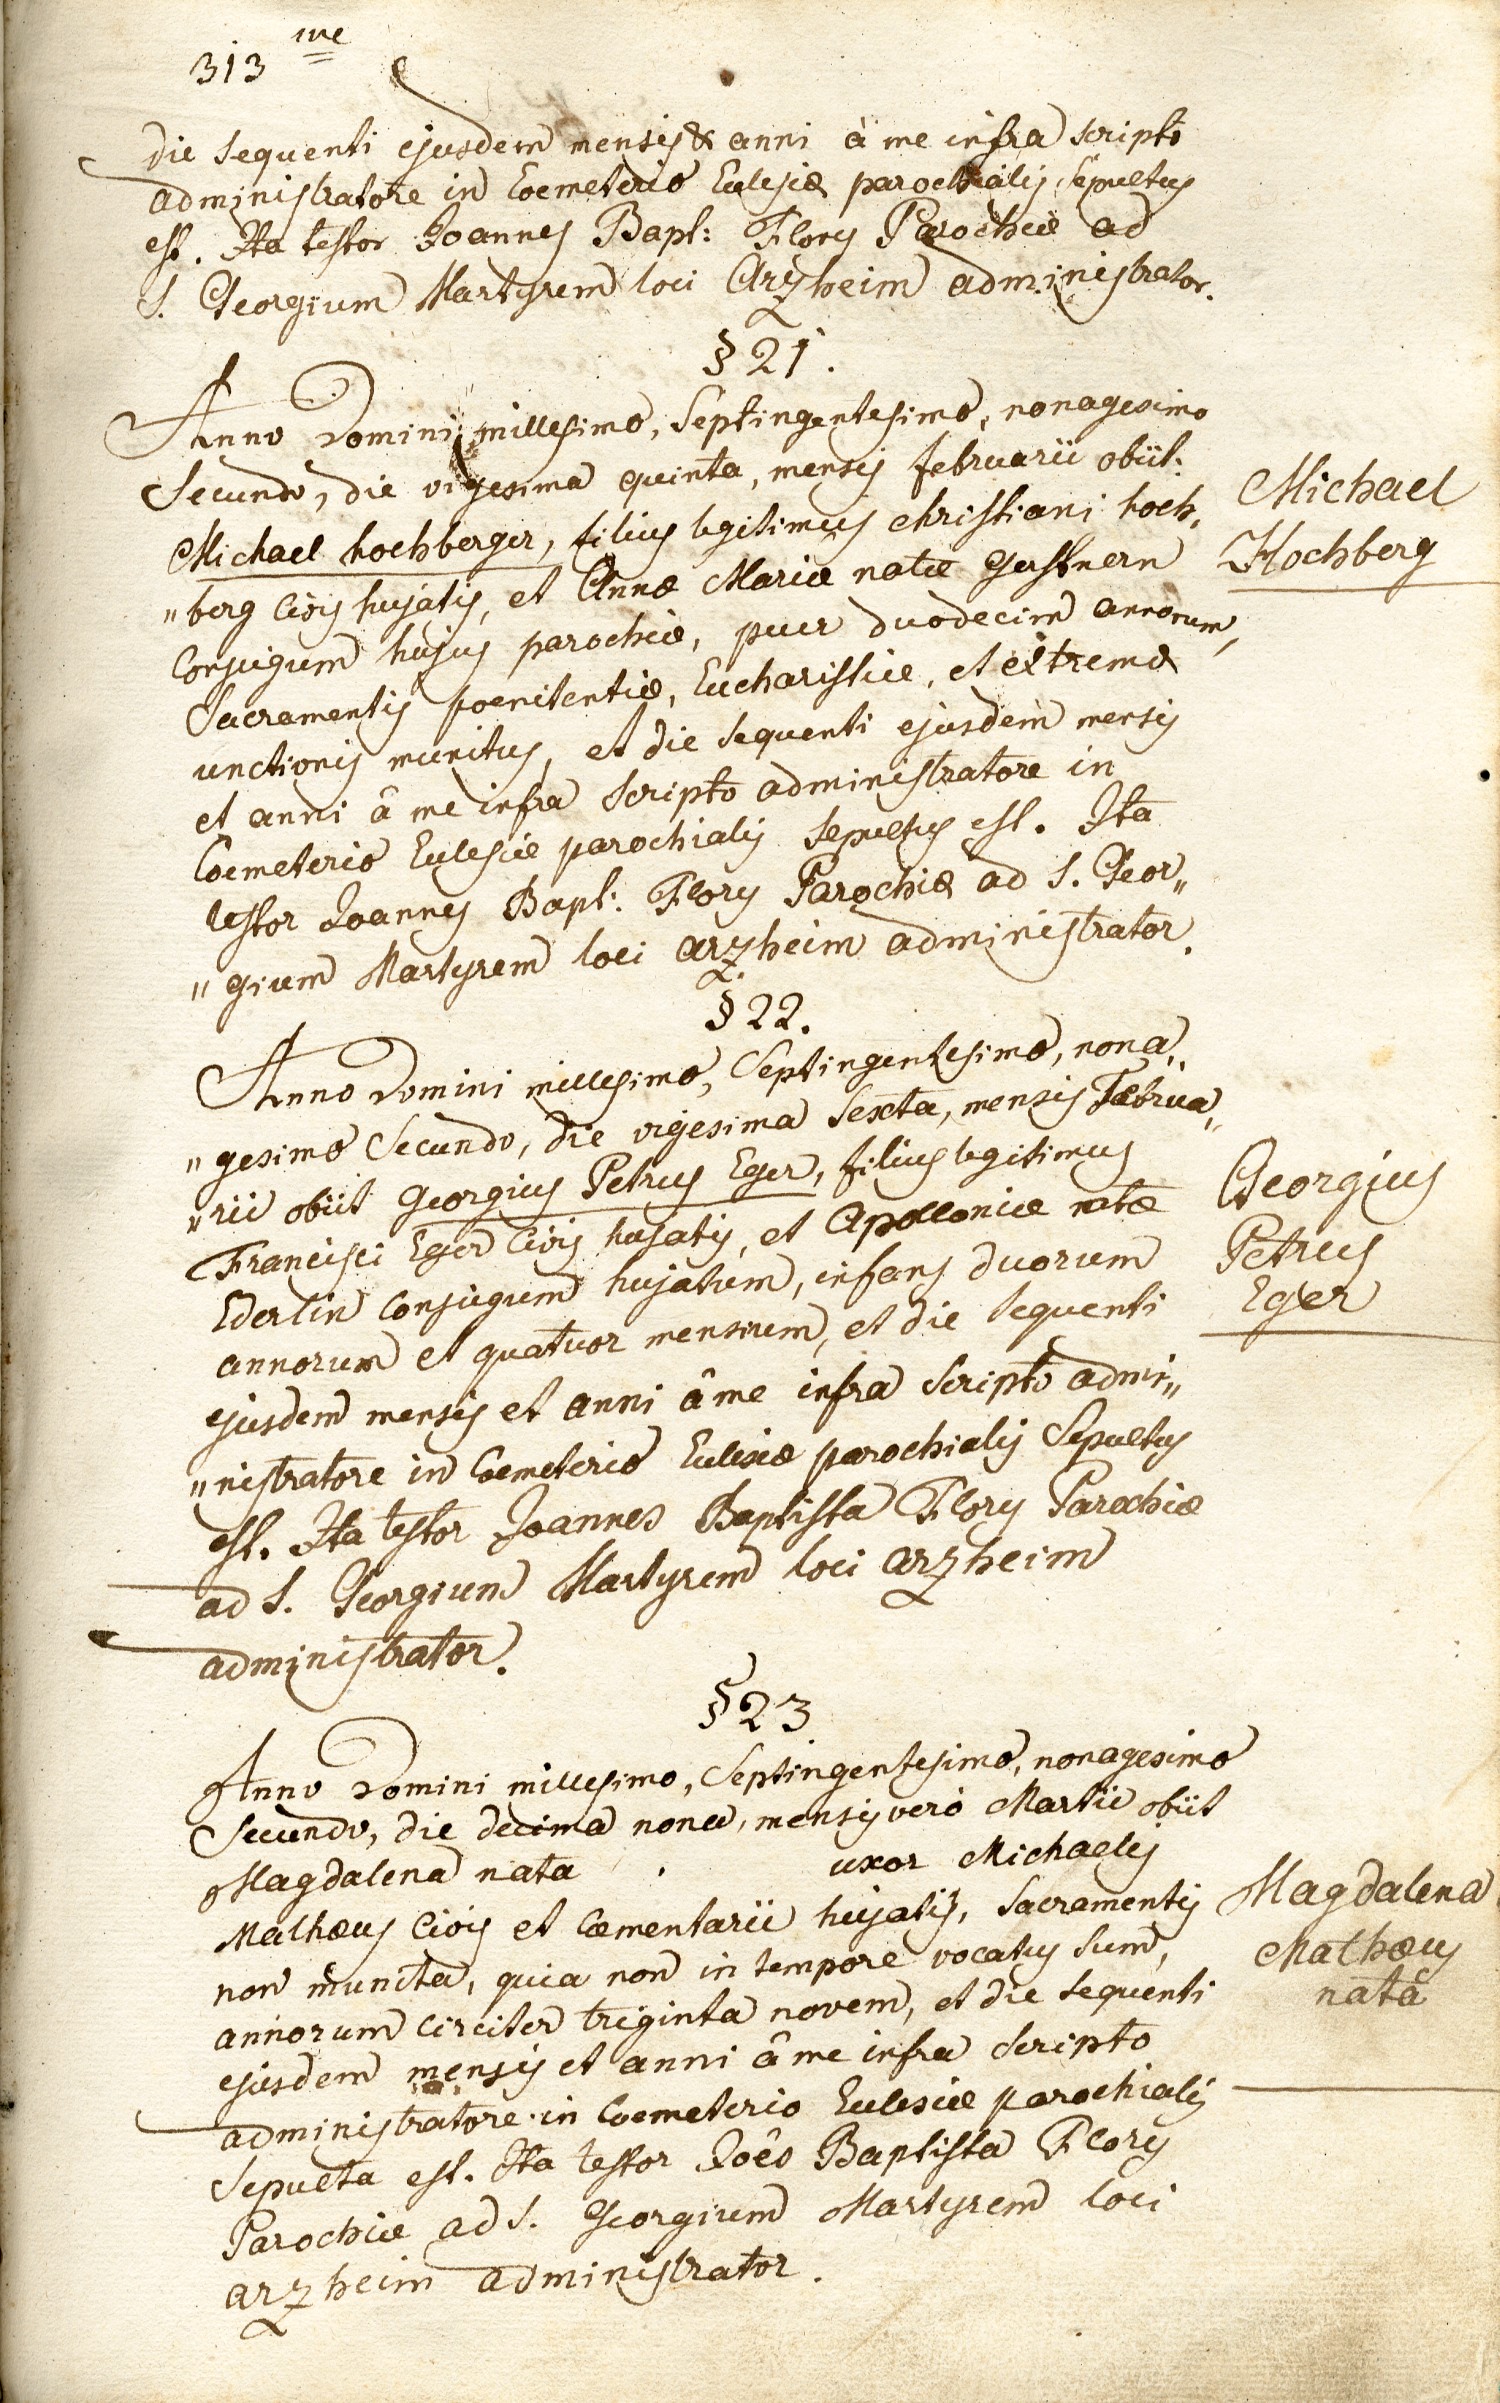 313 me
die sequenti ejusdem mensis & anni à me infra scripto
administratore in Coemeterio Eclesiæ parochialis sepultus
est. Ita testor Joannes Bapt: Flory Parochiæ ad
S. Georgium Martyrem loci Arzheim administrator.
§ 21.
Anno Domini millesimo, Septingentesimo, nonagesimo
Secundo, die vigesima quinta, mensis februarii obiit:
Michael hochberger, filius legitimus christiani hoch„
„berg Civis hujatis, et Annæ Mariæ natæ Gerstnern
Conjugum hujus parochiæ, puer duodecim annorum,
Sacramentis poenitentiæ, Eucharistiæ, et extremæ
unctionis munitus, et die sequenti ejusdem mensis
et anni â me infra scripto administratore in
Coemeterio Eclesiæ parochialis sepultus est. Ita
testor Joannes Bapt. Flory Parochiæ ad S. Geor„
„gium Martyrem loci arzheim administrator.
Michael
Hochberg
§ 22.
Anno Domini millesimo, Septingentesimo, nona„
„gesimo Secundo, die vigesima Sexta, mensis Februa„
„rii obiit Georgius Petrus Eger, filius legitimus
Francisci Eger Civis hujatis, et Apolloniæ natæ
Ederlin Conjugum hujatum, infans duorum
annorum et quatuor mensium, et die sequenti
ejusdem mensis et anni â me infra scripto admi„
„nistratore in Coemeterio Eclesiæ parochialis Sepultus
est. Ita testor Joannes Baptista Flory Parochiæ
ad S. Georgium Martyrem loci arzheim
administrator.
Georgius
Petrus
Eger
§ 23
Anno Domini millesimo, Septingentesimo, nonagesimo
Secundo, die decima nona, mensis vero Martii obiit
Magdalena nata . uxor Michaelis
Mathæus Civis et Cæmentarii hujatis, Sacramentis
non munita, quia non in tempore vocatus sum,
annorum circiter triginta novem, et die sequenti
ejusdem mensis et anni â me infra scripto
administratore in Coemeterio Eclesiæ parochialis
Sepulta est. Ita testor Joês Baptista Flory
Parochiæ ad S. Georgium Martyrem loci
arzheim administrator.
Magdalena
Mathæus
nata